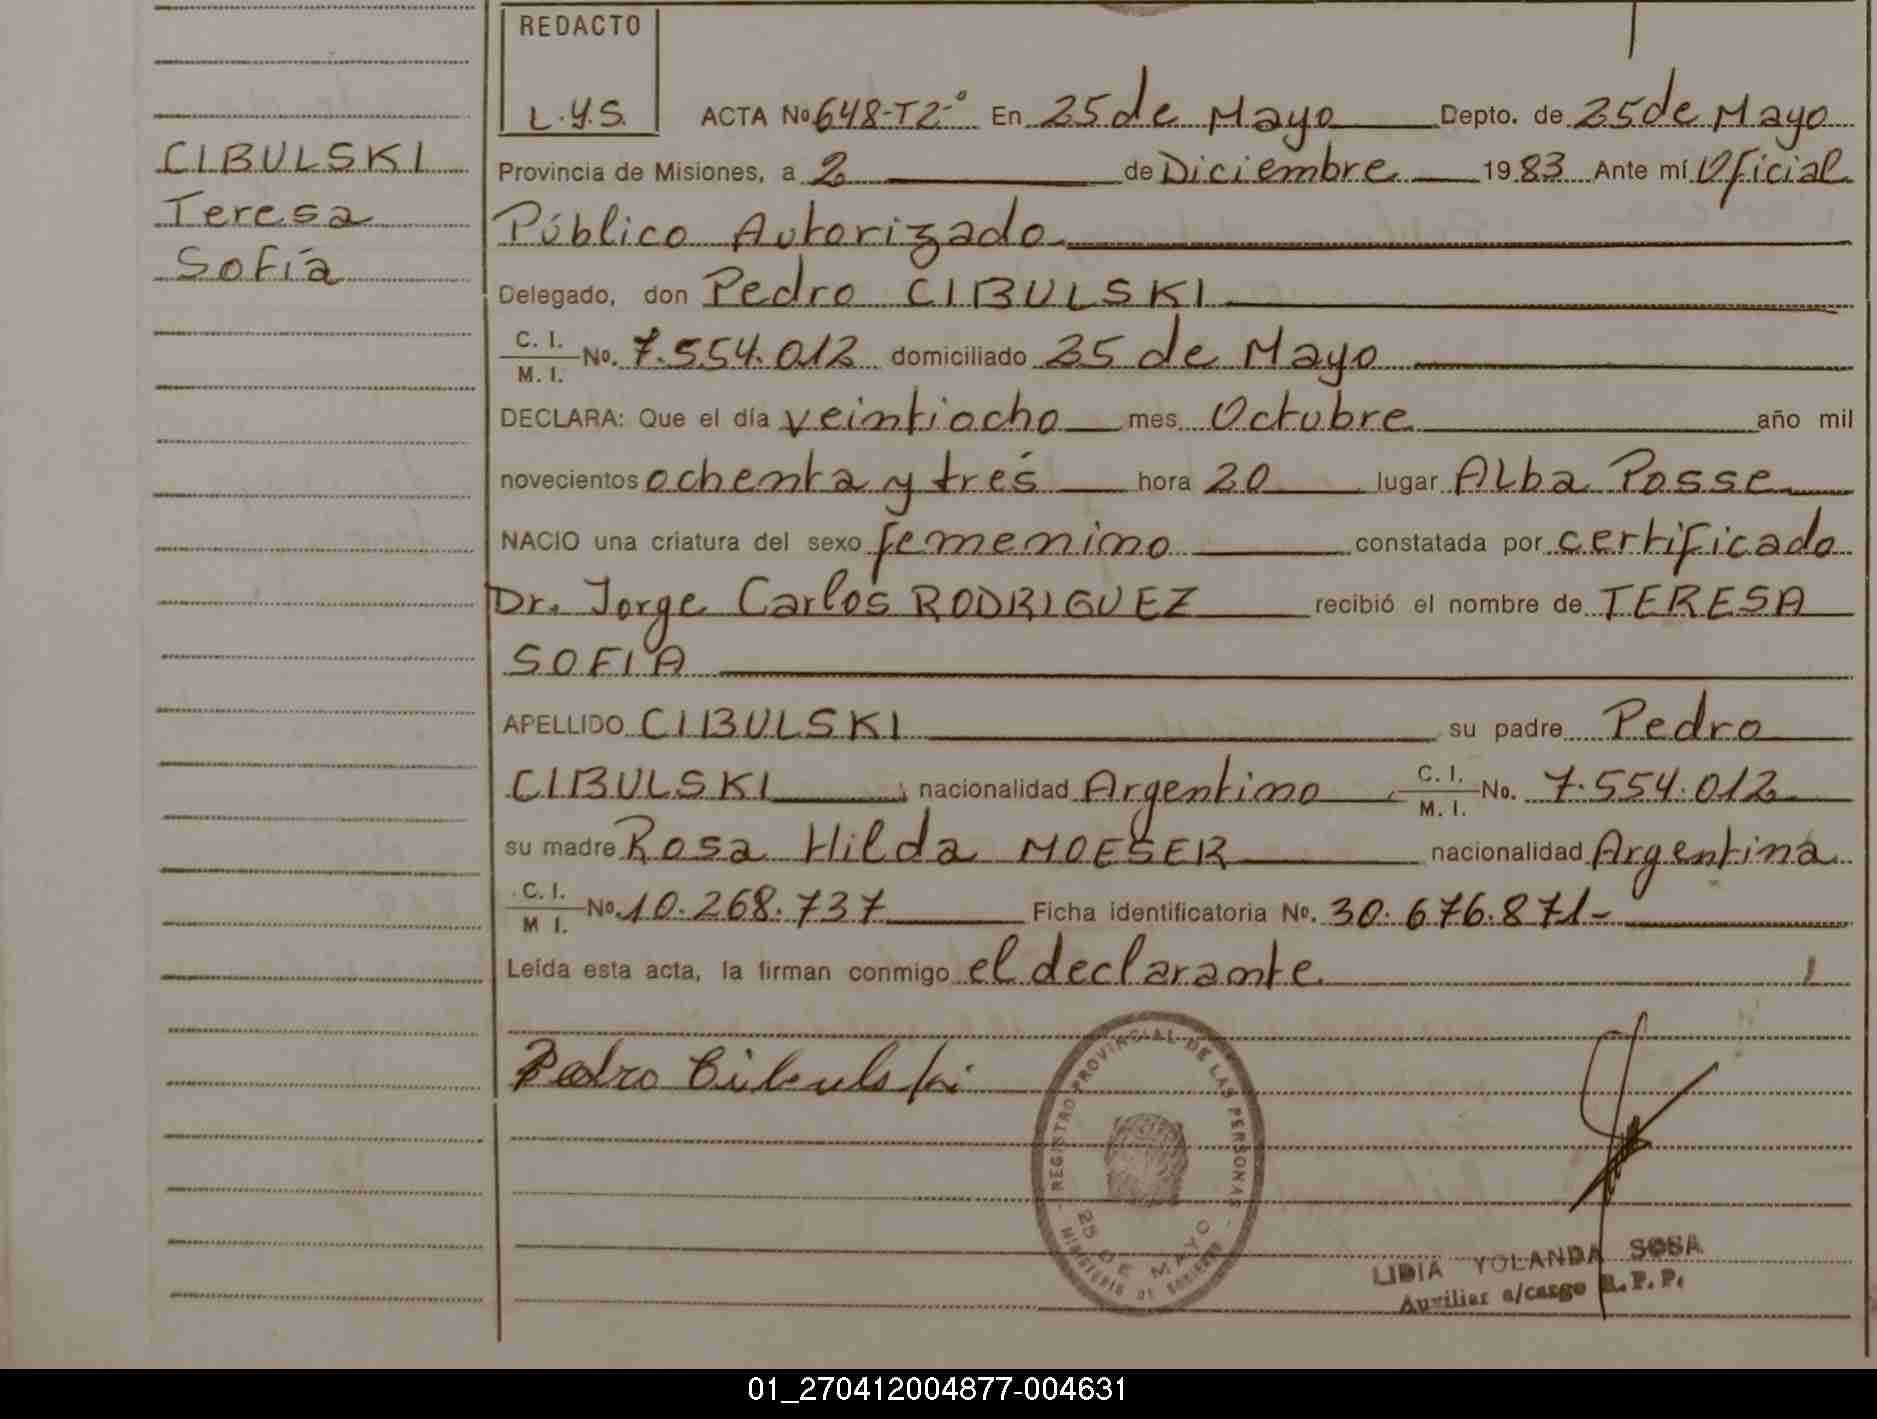 REDACTO
L.Y.S.
ACTA No 648-T2-° En 25 de Mayo Depto. de 25 de Mayo
CIBULSKI
Teresa
Sofía
Provincia de Misiones, a 2 de Diciembre 1983 Ante mí Oficial
Público Autorizado
Delegado, don Pedro CIBULSKI
C. I. / M. I. No. 7.554.012 domiciliado 25 de Mayo
DECLARA: Que el día veintiocho mes Octubre año mil
novecientos ochenta y tres hora 20 lugar Alba Posse
NACIO una criatura del sexo femenino constatada por certificado
Dr. Jorge Carlos RODRIGUEZ recibió el nombre de TERESA
SOFIA
APELLIDO CIBULSKI su padre Pedro
CIBULSKI nacionalidad Argentino C. I. / M. I. No. 7.554.012
su madre Rosa Hilda MOESER nacionalidad Argentina
C. I. / M I. No. 10.268.737 Ficha identificatoria No. 30.676.871-
Leída esta acta, la firman conmigo el declarante
Pedro Cibulski
REGISTRO PROVINCIAL DE LAS PERSONAS
25 DE MAYO
MINISTERIO DE GOBIERNO
LIDIA YOLANDA SOSA
Auxiliar a/cargo R. P. P.
01_270412004877-004631